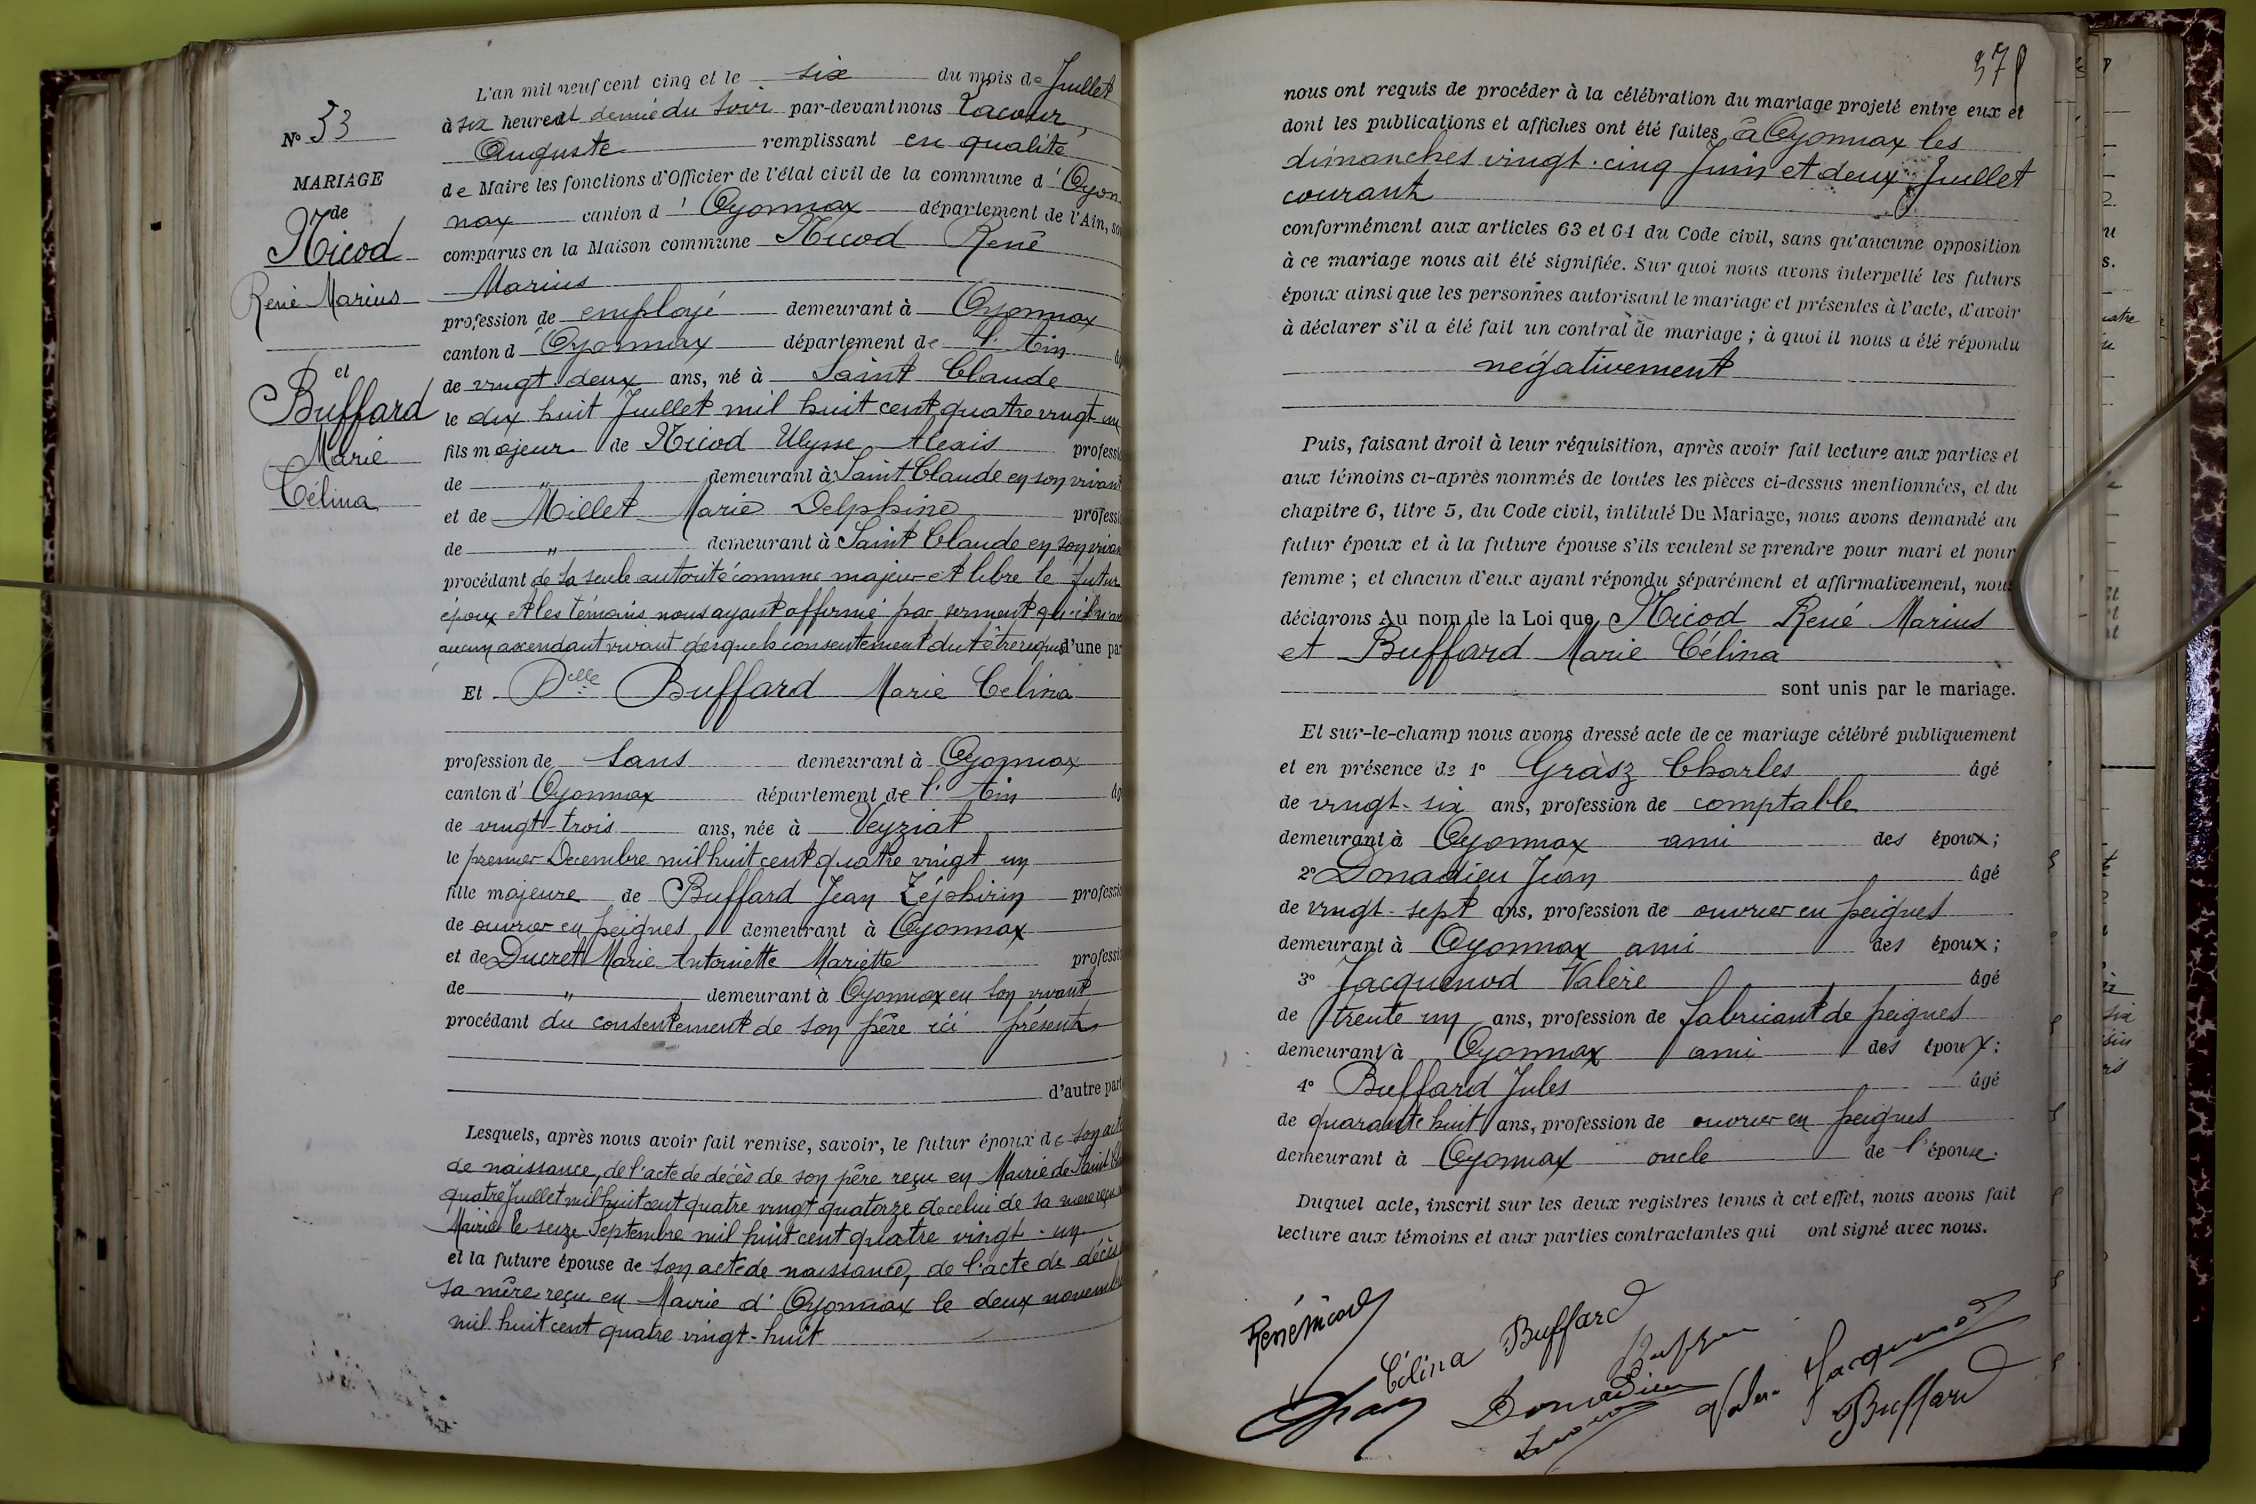 N° 53
MARIAGE
de
Nicod
René Marius
et
Buffard
Marie
Célina
L'an mil neuf cent cinq et le six du mois de Juillet
à six heures et demie du soir par-devant nous Lacour,
Auguste remplissant en qualité
de Maire les fonctions d'Officier de l'état civil de la commune d'Oyon
nax canton d'Oyonnax département de l'Ain, so
comparus en la Maison commune Nicod René
Marius
profession de employé demeurant à Oyonnax
canton d'Oyonnax département de l'Ain
de vingt deux ans, né à Saint Claude
le dix huit Juillet mil huit cent quatre vingt
fils majeur de Nicod Ulysse Alexis professi
de " demeurant à Saint Claude en son vivant
et de Millet Marie Delphine professi
de " demeurant à Saint Claude en son vivan
procédant de sa seule autorité comme majeur et libre le futur
époux et les témoins nous ayant affirmé par serment qu'il n'a
aucun ascendant vivant desquels consentement dut être requis d'une par
Et Delle Buffard Marie Celina
profession de Sans demeurant à Oyonnax
canton d'Oyonnax département de l'Ain âg
de vingt-trois ans, née à Veyziat
le premier Decembre mil huit cent quatre vingt un
fille majeure de Buffard Jean Zéphirin professi
de ouvrier en peignes demeurant à Oyonnax
et de Ducret Marie Antoinette Mariette professi
de " demeurant à Oyonnax en son vivant
procédant du consentement de son père ici présent
d'autre part
Lesquels, après nous avoir fait remise, savoir, le futur époux de son acte
de naissance, de l'acte de décès de son père reçu en Mairie de Saint
quatre Juillet mil huit cent quatre vingt quatorze de celui de sa mère reçu
Mairie le seize Septembre mil huit cent quatre vingt-un
et la future épouse de son acte de naissance, de l'acte de décès
sa mère reçu en Mairie d'Oyonnax le deux novemb
mil huit cent quatre vingt-huit
nous ont requis de procéder à la célébration du mariage projeté entre eux et
dont les publications et affiches ont été faites à Oyonnax les
dimanches vingt-cinq Juin et deux Juillet
courant
conformément aux articles 63 et 64 du Code civil, sans qu'aucune opposition
à ce mariage nous ait été signifiée. Sur quoi nous avons interpellé les futurs
époux ainsi que les personnes autorisant le mariage et présentes à l'acte, d'avoir
à déclarer s'il a été fait un contrat de mariage ; à quoi il nous a été répondu
négativement
Puis, faisant droit à leur réquisition, après avoir fait lecture aux parties et
aux témoins ci-après nommés de toutes les pièces ci-dessus mentionnées, et du
chapitre 6, titre 5, du Code civil, intitulé Du Mariage, nous avons demandé au
futur époux et à la future épouse s'ils veulent se prendre pour mari et pour
femme ; et chacun d'eux ayant répondu séparément et affirmativement, nous
déclarons Au nom de la Loi que Nicod René Marius
et Buffard Marie Célina
sont unis par le mariage.
Et sur-le-champ nous avons dressé acte de ce mariage célébré publiquement
et en présence de 1° Grasz Charles âgé
de vingt-six ans, profession de comptable
demeurant à Oyonnax ami des époux ;
2° Donadieu Jean âgé
de vingt-sept ans, profession de ouvrier en peignes
demeurant à Oyonnax ami des époux ;
3° Jacquenod Valère âgé
de trente un ans, profession de fabricant de peignes
demeurant à Oyonnax ami des époux ;
4° Buffard Jules âgé
de quarante huit ans, profession de ouvrier en peignes
demeurant à Oyonnax oncle de l'épouse.
Duquel acte, inscrit sur les deux registres tenus à cet effet, nous avons fait
lecture aux témoins et aux parties contractantes qui ont signé avec nous.
René nicod
Célina Buffard
Donadieu
Jacquenod
Buffard